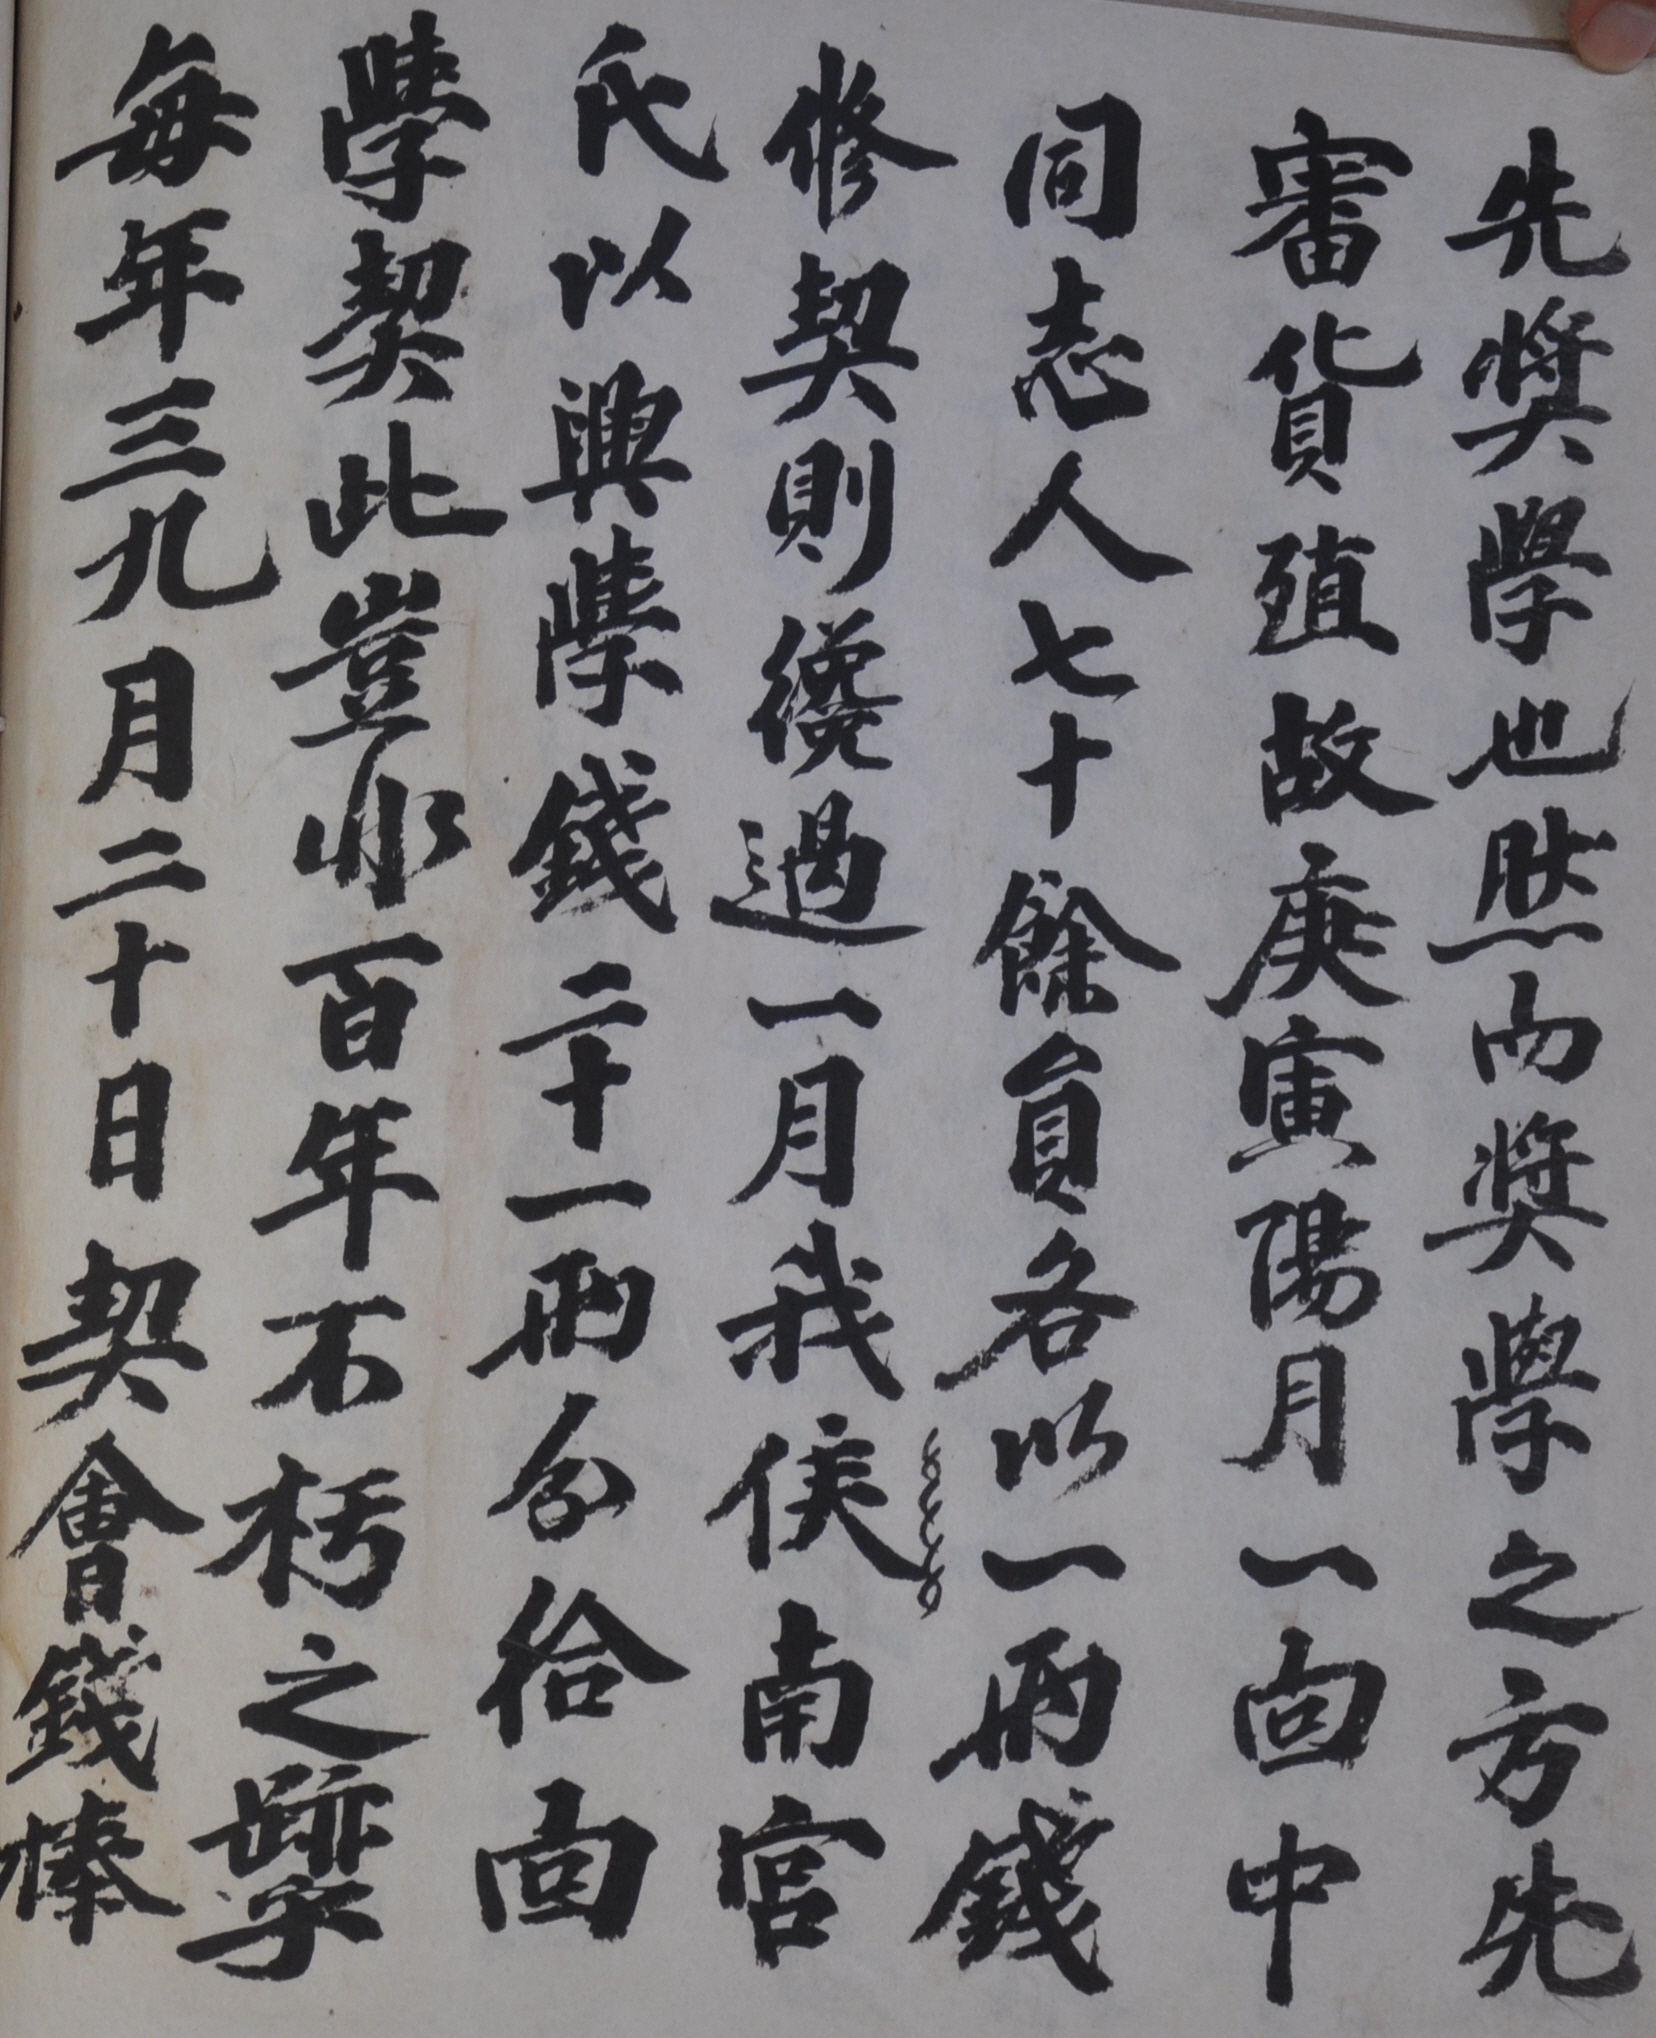 先奬學也然而奬學之方先
審貨殖故庚寅陽月一面中
同志人七十餘員各以一兩錢
修契則纔過一月我侯南宮
氏以興學錢二十一兩分給面
學契此豈非百年不朽之蹟乎
每年三九月二十日契會錢棒